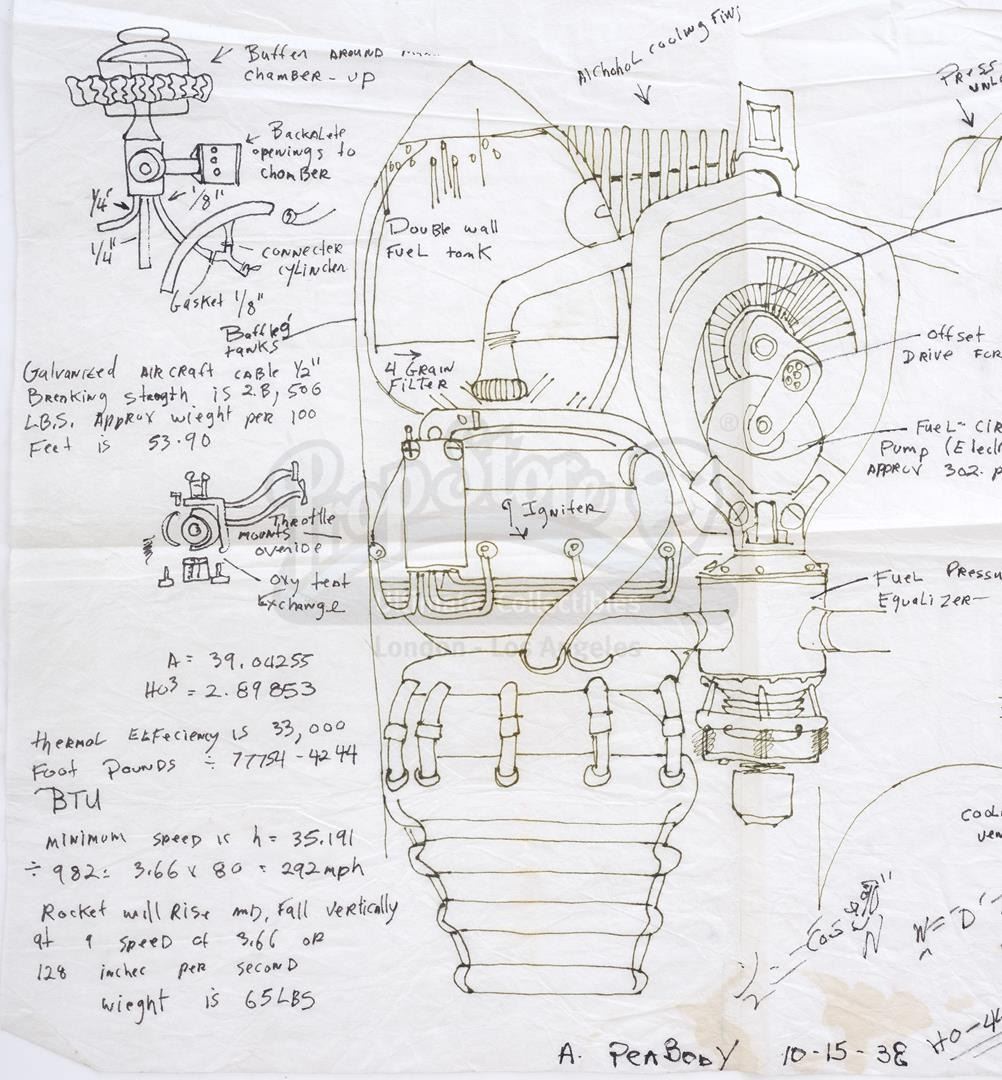 Buffen AROUND
chamber - up
Alchohol cooling Fins
Press
Backalete
openings to
chamber
1/4"
1/8"
1/4"
connecter
cylinder
Gasket 1/8"
Double wall
Fuel tank
Baffled
tanks
4 Grain
Filter
Galvanized AIRCRAFT CABLE 1/2"
Breaking strength is 28,500
L.B.S. Approx wieght per 100
Feet is 53.90
Offset
Drive For
Fuel - Cir
Pump (Elect
Approx 302. P
9 Igniter
Throttle
mounts
overide
oxy tent
Exchange
Fuel Pressu
Equalizer -
Propstore
®
Ultimate Collectibles
London - Los Angeles
A = 39.04255
HO³ = 2.89853
thermal Effeciency is 33,000
Foot Pounds ÷ 77754 - 4244
BTU
minimum speed is h = 35.191
÷ 982 = 3.66 x 80 = 292mph
Rocket will Rise and, Fall vertically
at a speed of 3.66 or
128 inches per second
wieght is 65 LBS
Cool
ven
N = D
HO-44
A. PEABODY 10-15-38